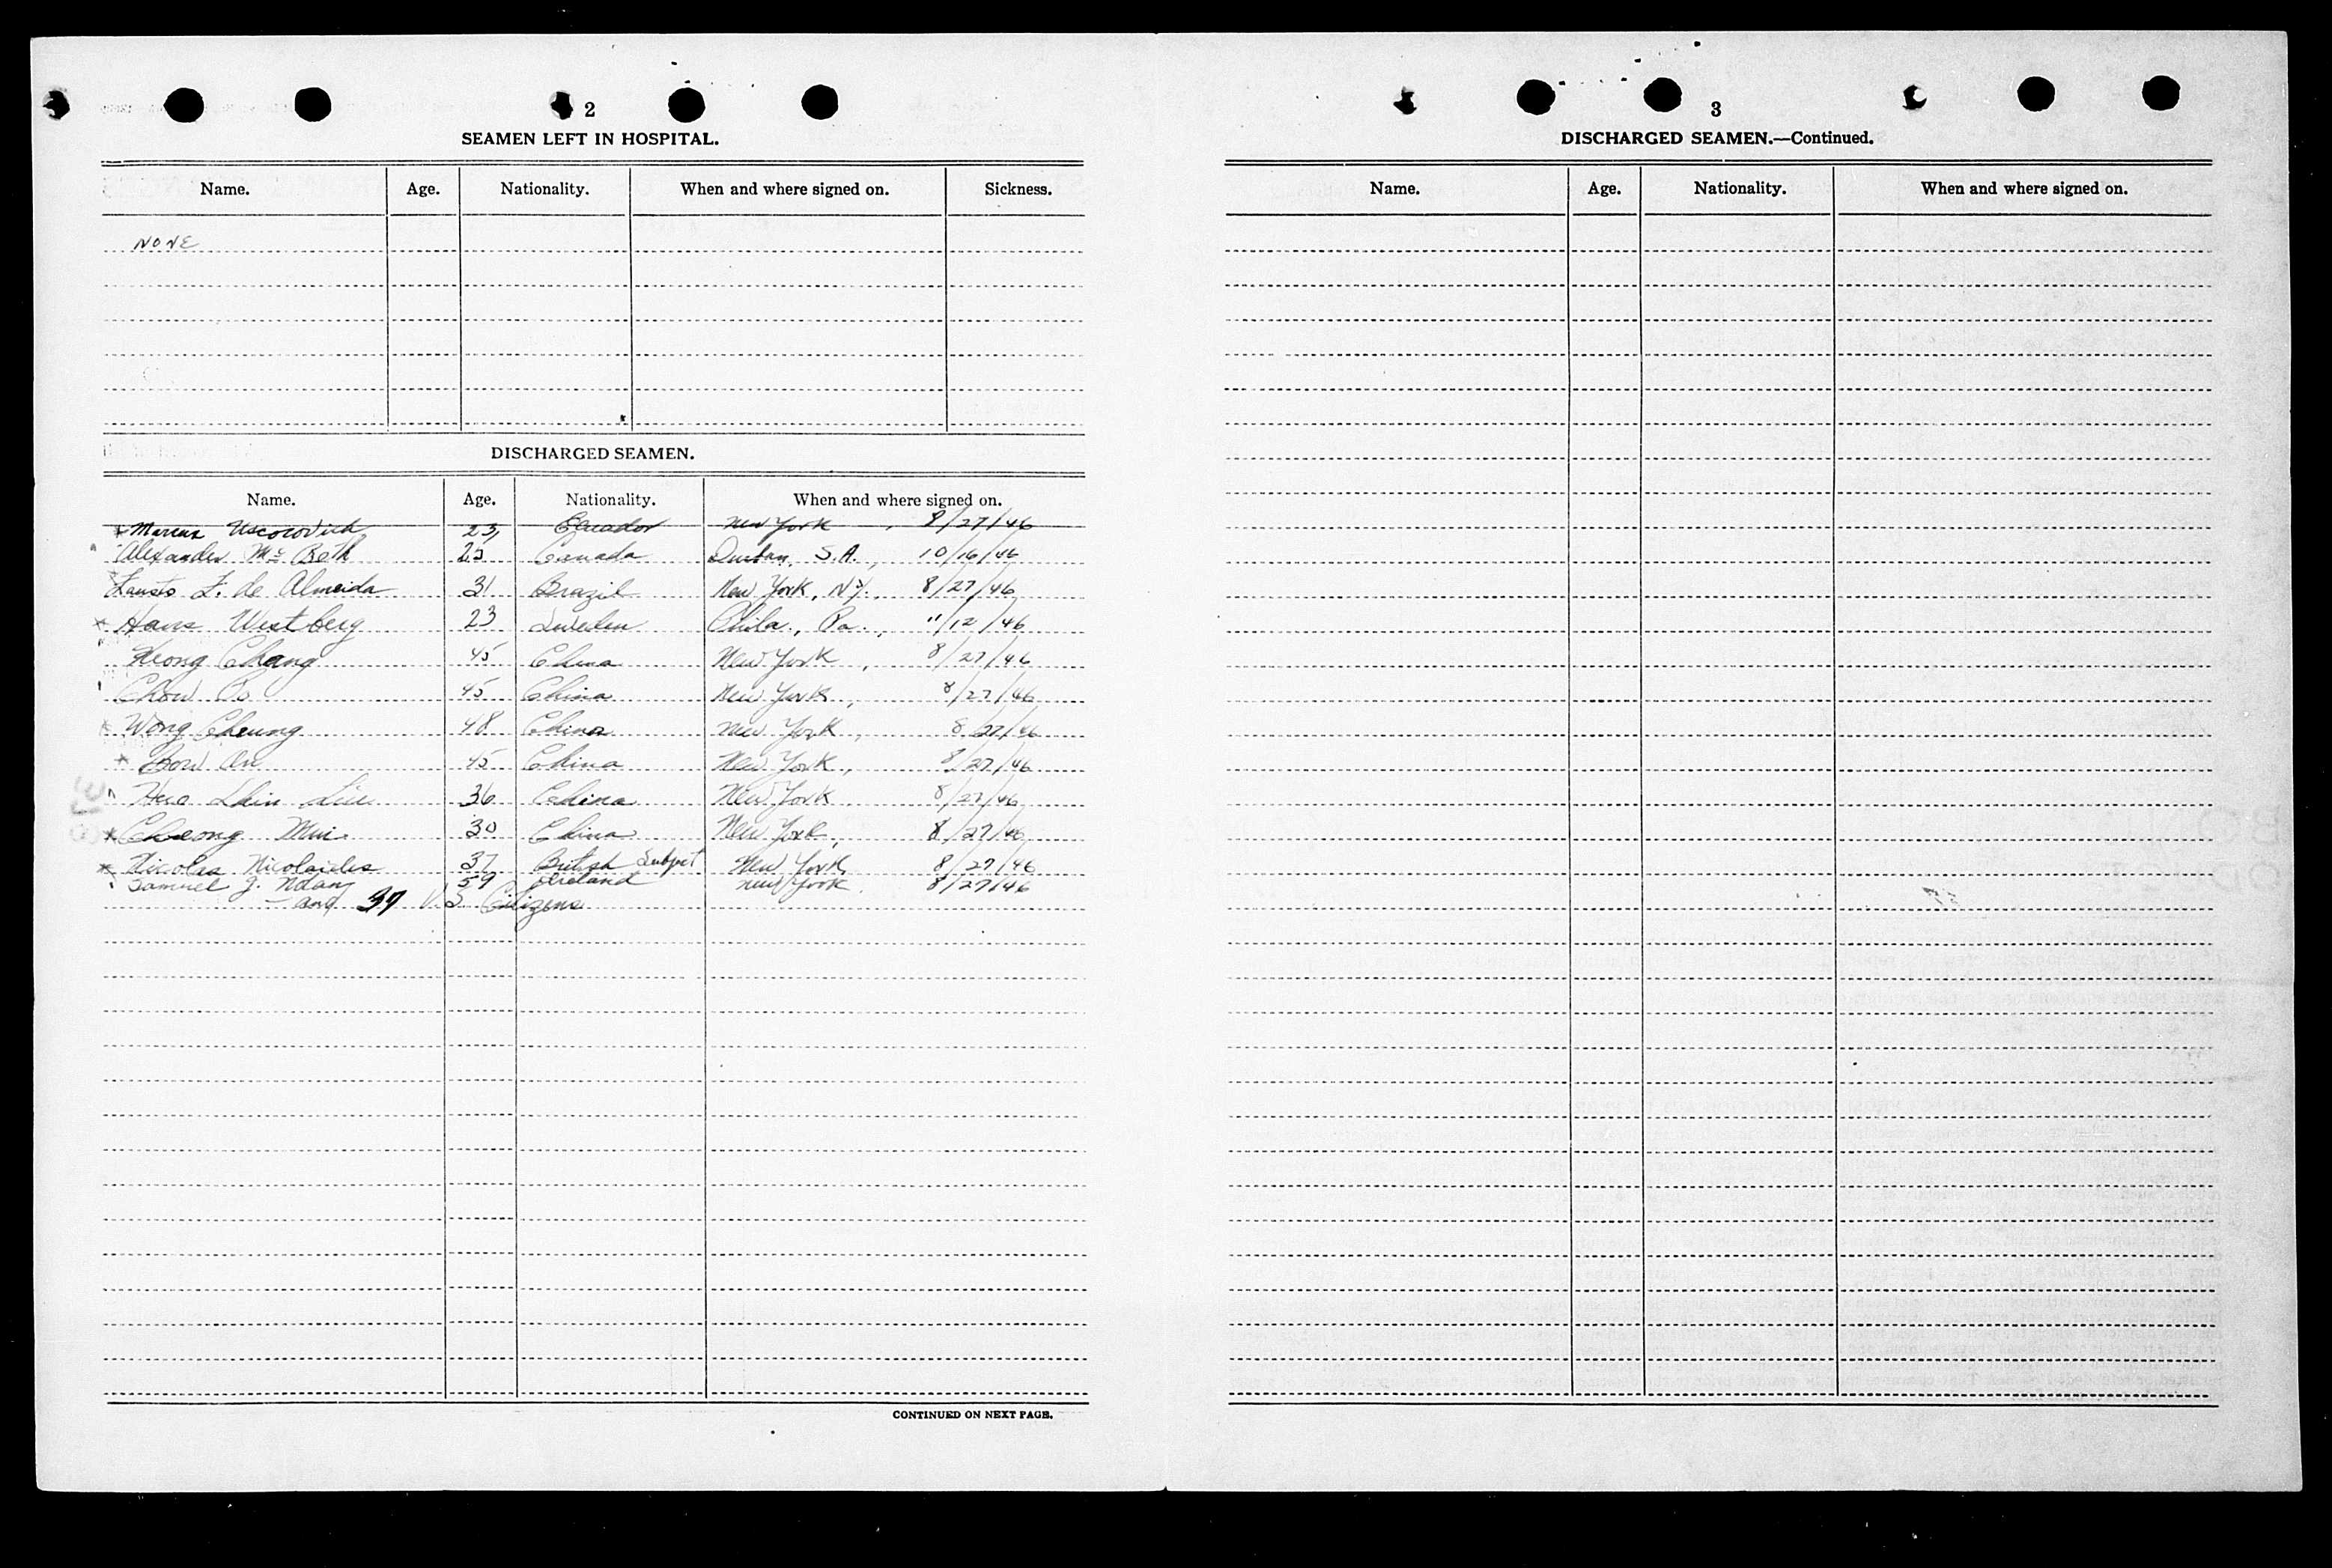 2
SEAMEN LEFT IN HOSPITAL.
Name. Age. Nationality. When and where signed on. Sickness.
NONE
DISCHARGED SEAMEN.
Name. Age. Nationality. When and where signed on.
Marcus Uscocovich 23 Ecuador New York , 8/27/46
Alexander Mc Beth 25 Canada Durban, S.A., 10/16/46
Fausto F. de Almeida 31 Brazil New York, N.Y., 8/27/46
Hans Westberg 23 Sweden Phila., Pa., 11/12/46
Chang 45 China New York , 8/27/46
Chow 45 China New York, 8/27/46
Wong Cheung 48 China New York, 8/27/46
45 China New York, 8/27/46
36 China New York 8/27/46
Cheong Mui 30 China New York, 8/27/46
Nicolas Nicolaides 37 British Subject New York, 8/27/46
Samuel J. 59 Ireland New York. 8/27/46
- and 37 U.S. Citizens
CONTINUED ON NEXT PAGE.
3
DISCHARGED SEAMEN.—Continued.
Name. Age. Nationality. When and where signed on.